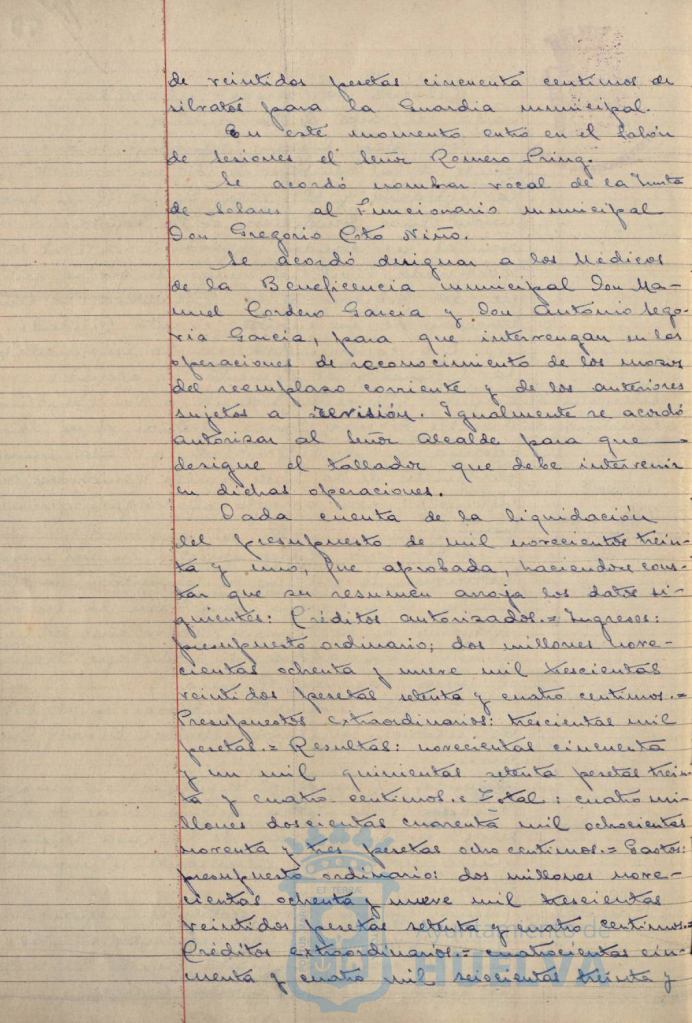 de veintidos pesetas cincuenta centimos de
silvatos para la Guardia municipal.
En este momento entró en el Salón
de Sesiones el Señor Romero Pring.
Se acordó nombrar vocal de la Junta
de Solares al Funcionario municipal
Don Gregorio Niño.
Se acordó designar a los Médicos
de la Beneficencia municipal Don Ma-
nuel Cordero Garcia y Don Antonio Sego-
via Garcia, para que intervengan en las
operaciones de reconocimiento de los mozos
del reemplazo corriente y de los anteriores
sujetos a revisión. Igualmente se acordó
autorizar al Señor Alcalde para que
designe el tallador que debe intervenir
en dichas operaciones.
Dada cuenta de la liquidación
del presupuesto de mil novecientos trein-
ta y uno, fue aprobada, haciendose cons-
tar que su resumen arroja los datos si-
guientes: Créditos autorizados.= Ingresos:
presupuesto ordinario; dos millones nove-
cientas ochenta y nueve mil trescientas
veintidos pesetas setenta y cuatro centimos.=
Presupuestos extraordinarios: trescientas mil
pesetas.= Resultas: novecientas cincuenta
y un mil quinientas setenta pesetas trein-
ta y cuatro centimos.= Total: cuatro mi-
llones doscientas cuarenta mil ochocientas
noventa y tres pesetas ocho centimos.= Gastos:
presupuesto ordinario: dos millones nove-
cientas ochenta y nueve mil trescientas
veintidos pesetas setenta y cuatro centimos.=
Créditos extraordinarios.= cuatrocientas cin-
cuenta y cuatro mil seiscientas treinta y
Ayuntamiento de
HUELVA